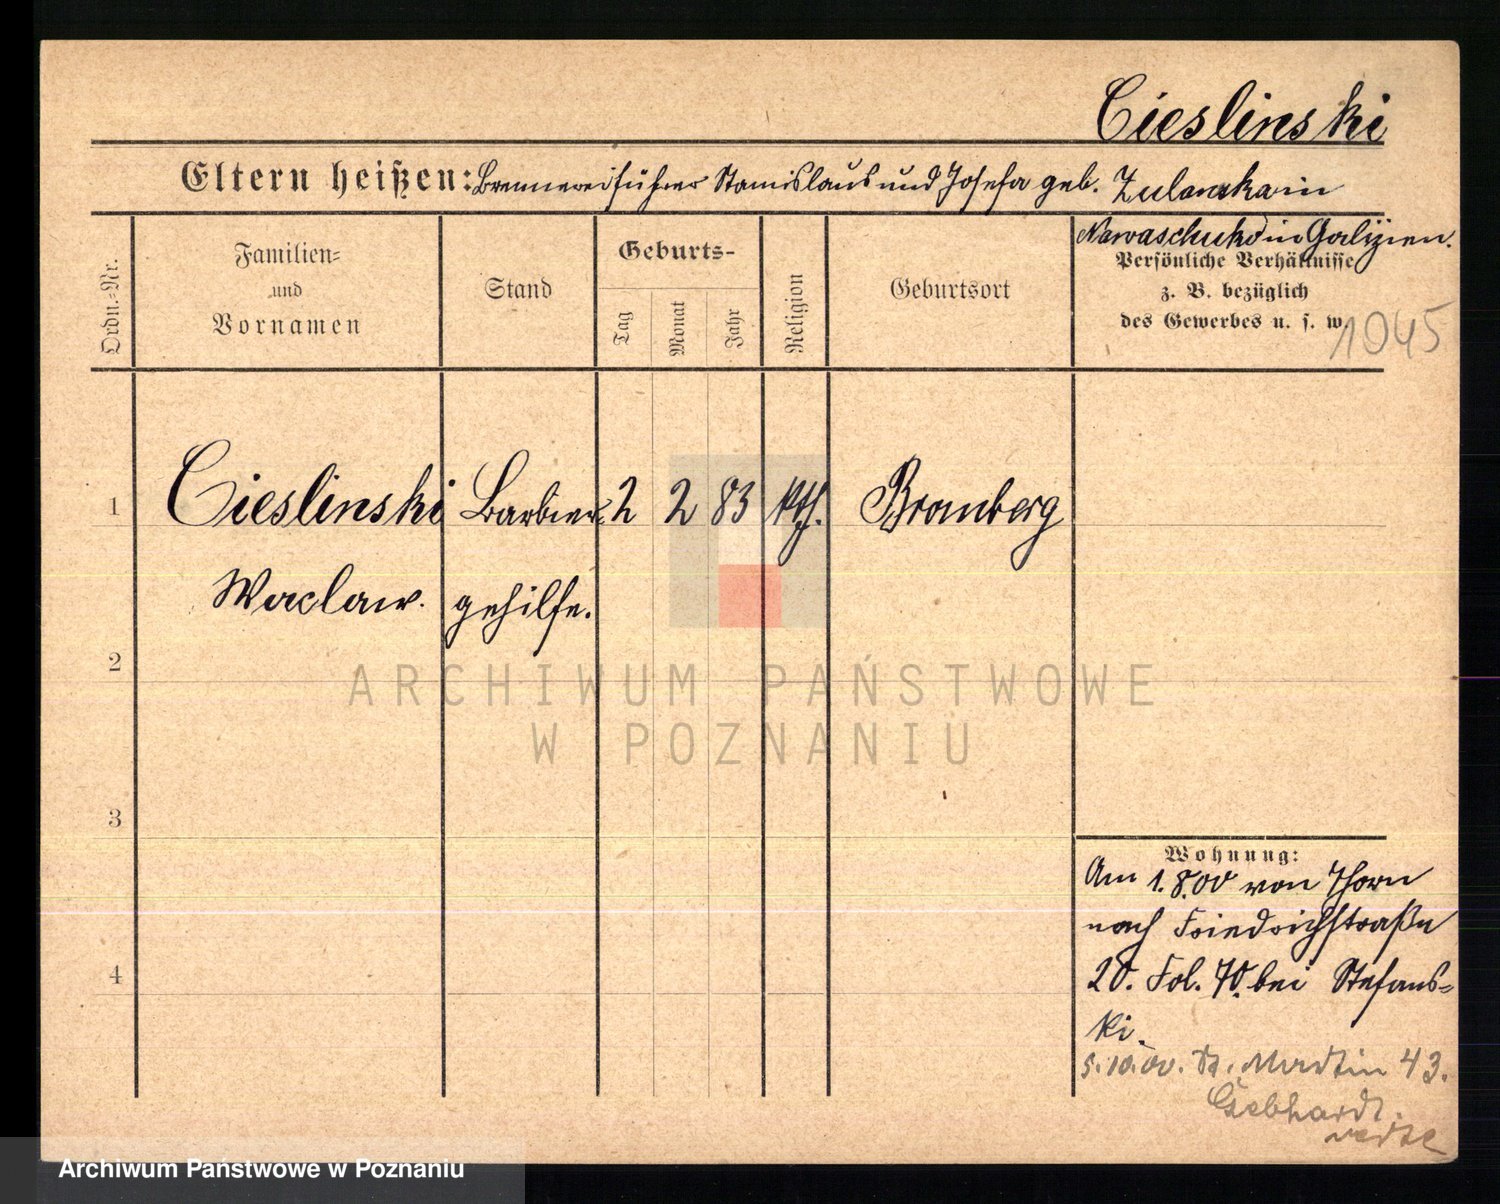 Cieslinski
Eltern heißen: Brennereiführer Stanislaus und Josefa geb. Zulanska in
Nawaschuko in Galizien.
Ordn.=Nr.
Familien=
und
Vornamen
Stand
Geburts-
Tag
Monat
Jahr
Religion
Geburtsort
Persönliche Verhältnisse
z. B. bezüglich
des Gewerbes u. s. w.
1045
1 Cieslinski Barbier= 2 2 83 kth. Bromberg
Waclaw. gehilfe.
2
3
4
Wohnung:
Am 1.8.00 von Thorn
nach Friedrichstraße
20. Fol. 70. bei Stefans=
ki.
5.10.00. St. Martin 43.
Gebhardt.
ARCHIWUM PAŃSTWOWE
W POZNANIU
Archiwum Państwowe w Poznaniu